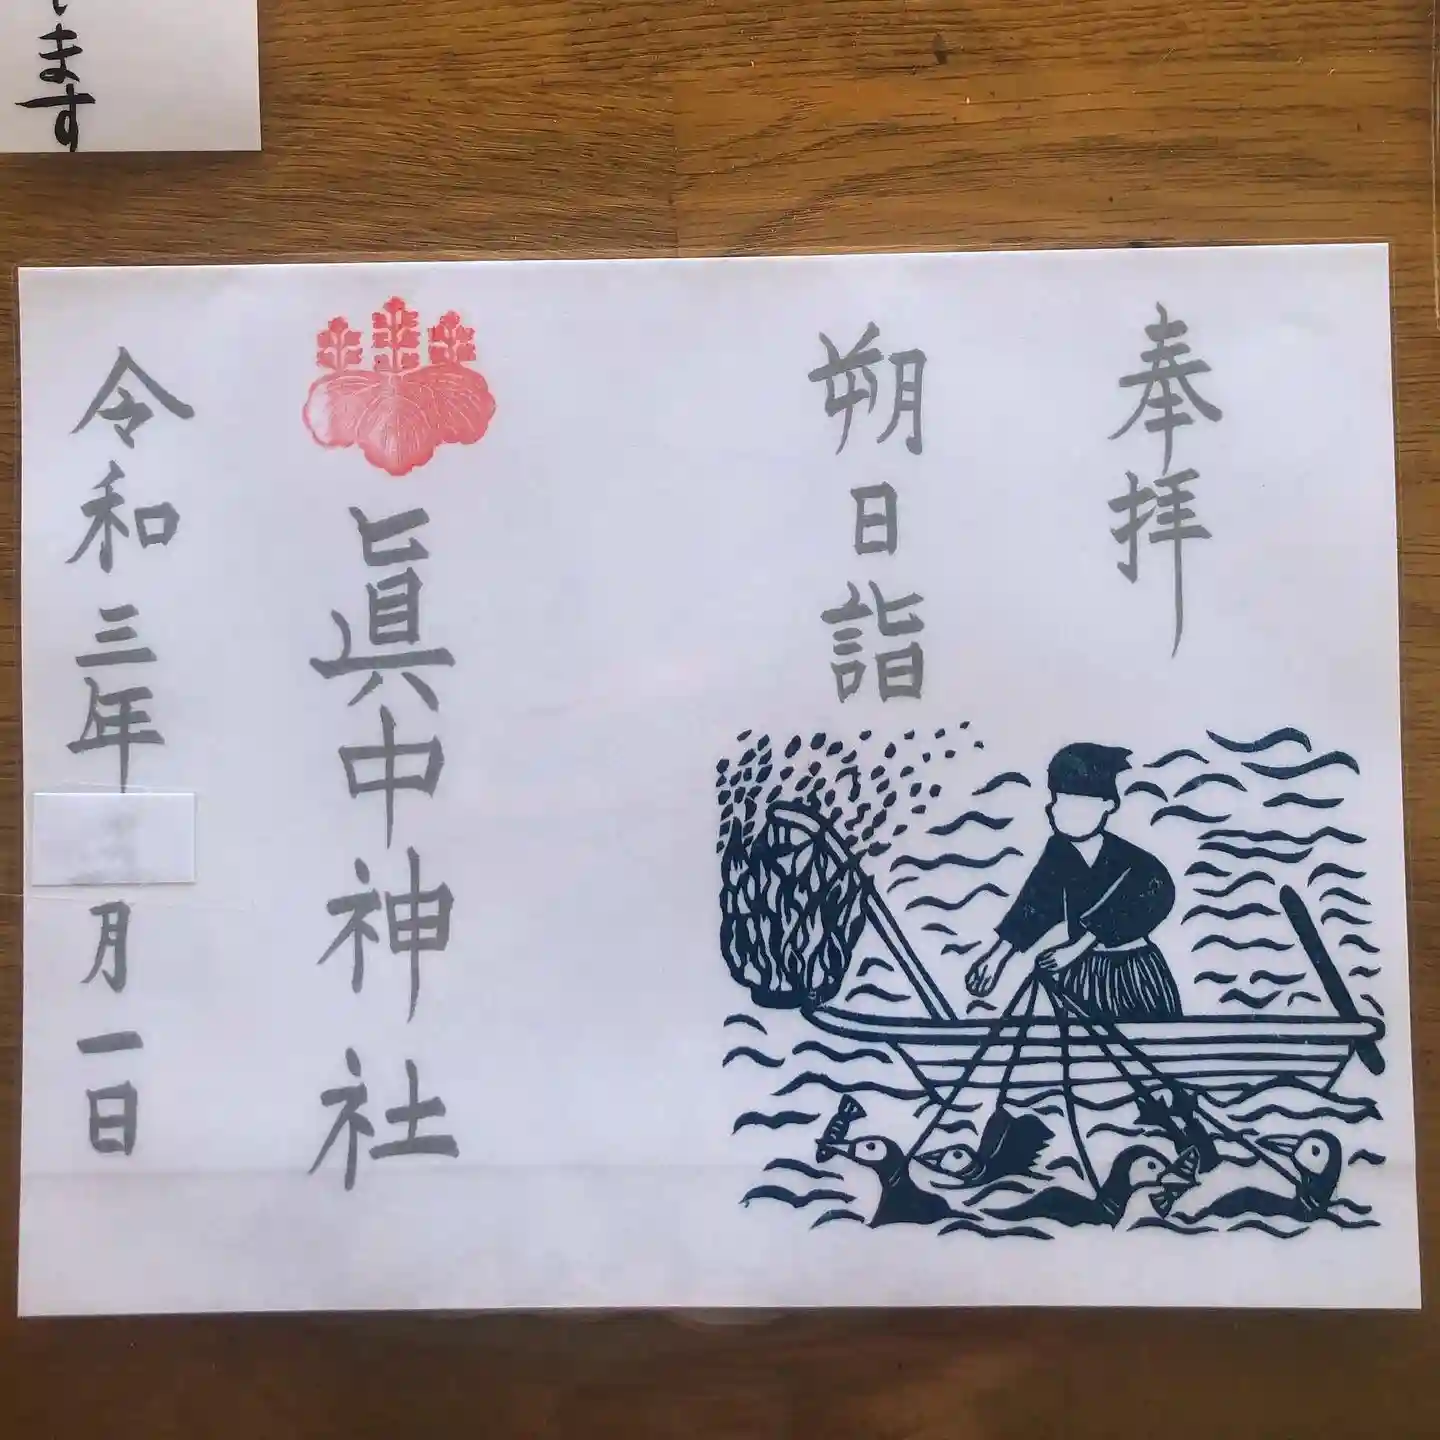 奉拝
朔日詣
眞中神社
令和三年
月一日
ます